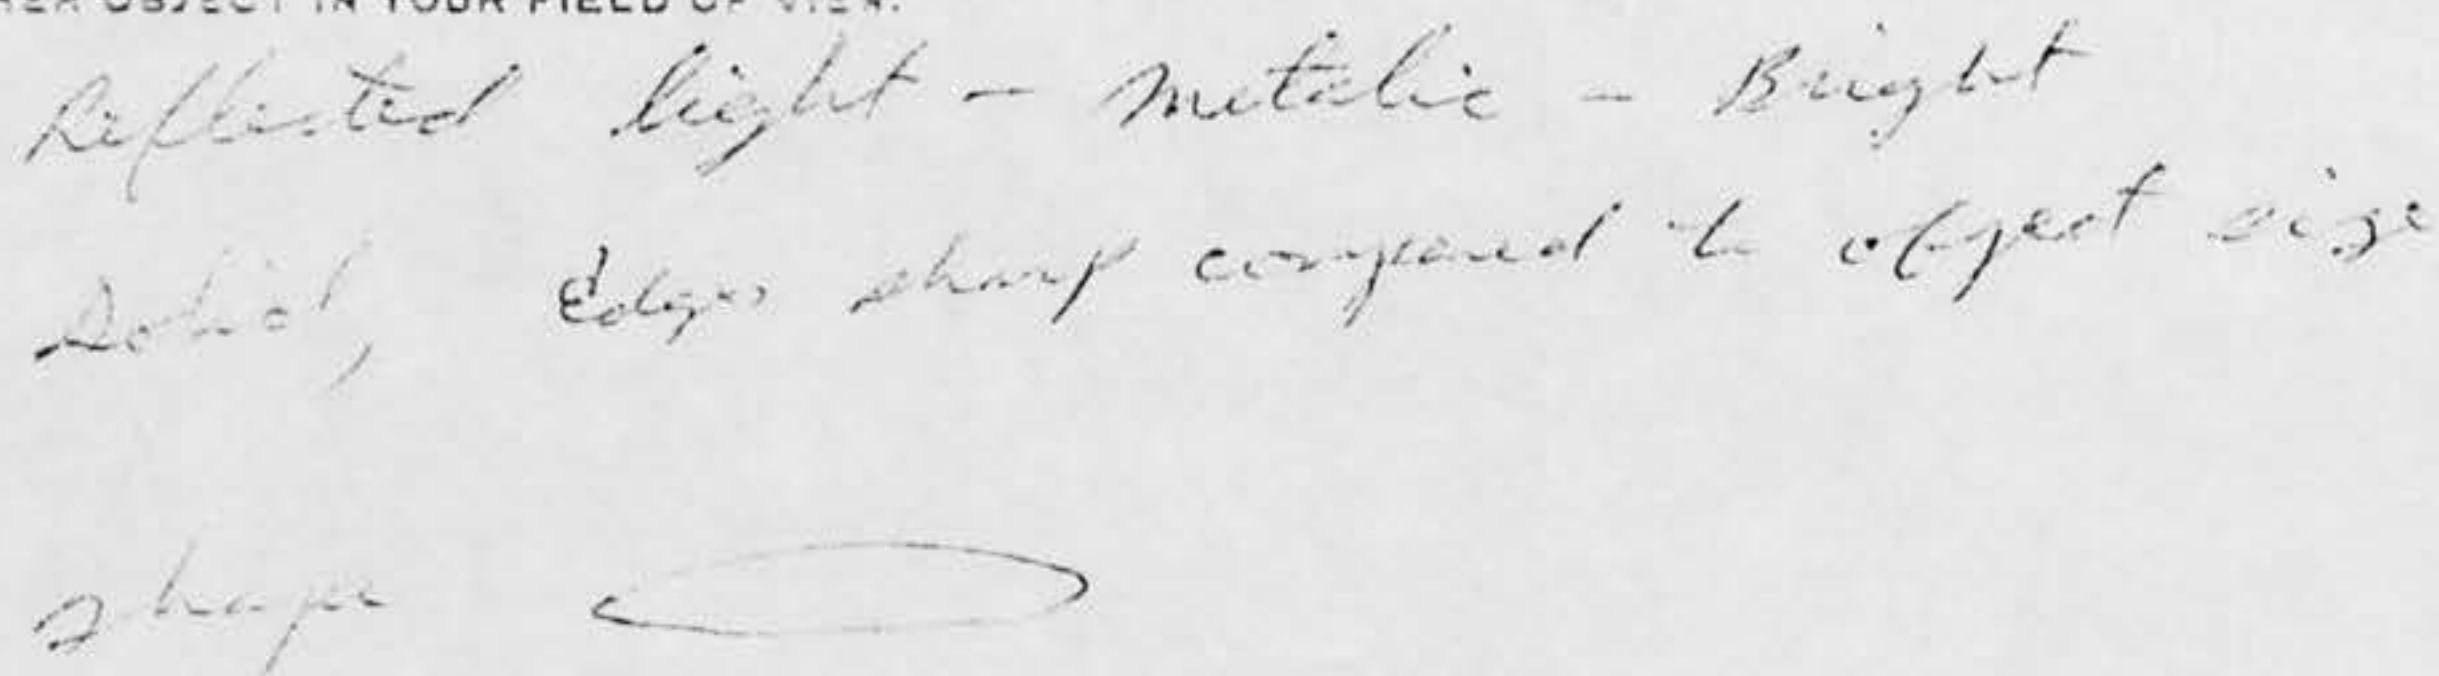 OBJECT IN YOUR FIELD OF VIEW.
Reflected light - metalic - Bright
Solid, Edges sharp compared to object size
shape